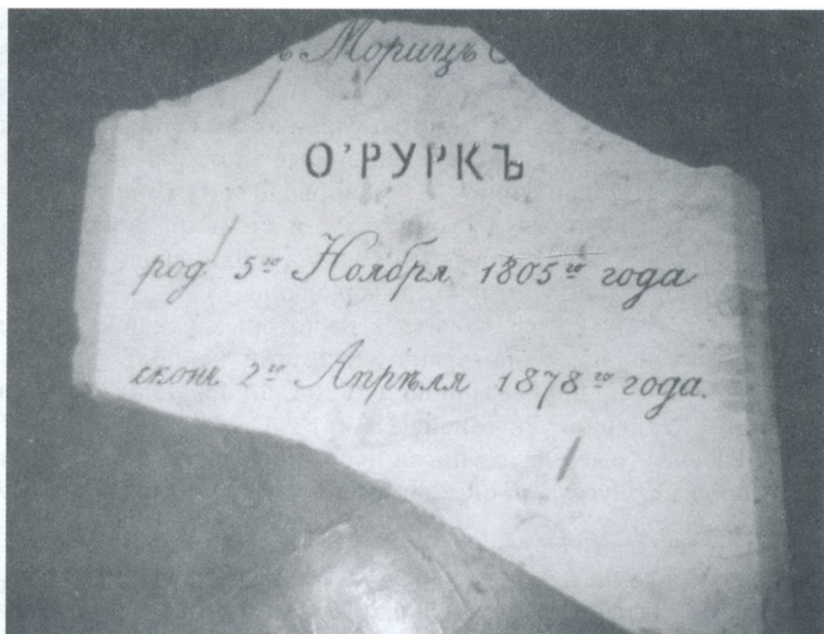 Морицъ
О'РУРКЪ
род 5го Ноября 1805го года
сконч 2го Апрѣля 1878го года.